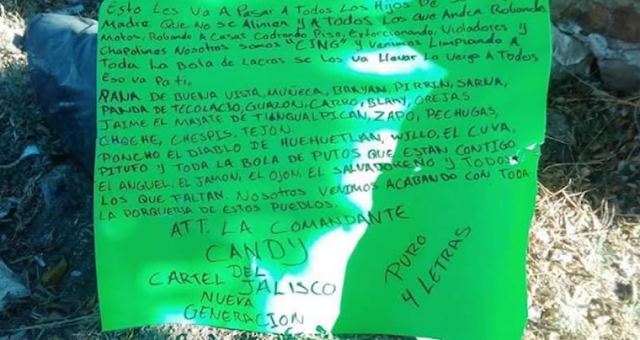 Esto Les Va A Pasar A Todos Los Hijos De
Madre Que No Se Alinien Y A Todos Los Que Andan Robando
Motos, Robando A Casas Cobrando Piso, Extorcionando, Violadores y
Chapulines Nosotros Somos "CJNG" y Venimos Limpiando A
Toda La Bola De Lacras Se Los Va Llevar La Verga A Todos
Eso Va Pa ti,
RANA DE BUENA VISTA, MUÑECA, BRAYAN, PIRRIN, SARNA,
PANDA DE TECOLACIO, GUAZON, CARRO, BLAKY, OREJAS
JAIME EL MAYATE DE TLANGUALPICAN, ZAPO, PECHUGAS,
CHOCHE, CHESPIS, TEJON.
PONCHO EL DIABLO DE HUEHUETLAN, WILLO, EL CUVA,
PITUFO Y TODA LA BOLA DE PUTOS QUE ESTAN CONTIGO
EL ANGUEL, EL JAMON, EL OJON, EL SALVADOREÑO Y TODOS
LOS QUE FALTAN. NOSOTROS VENIMOS ACABANDO CON TODA
LA PORQUERIA DE ESTOS PUEBLOS.
ATT. LA COMANDANTE
CANDY
DEL
CARTEL JALISCO
NUEVA
GENERACION
PURO
4 LETRAS